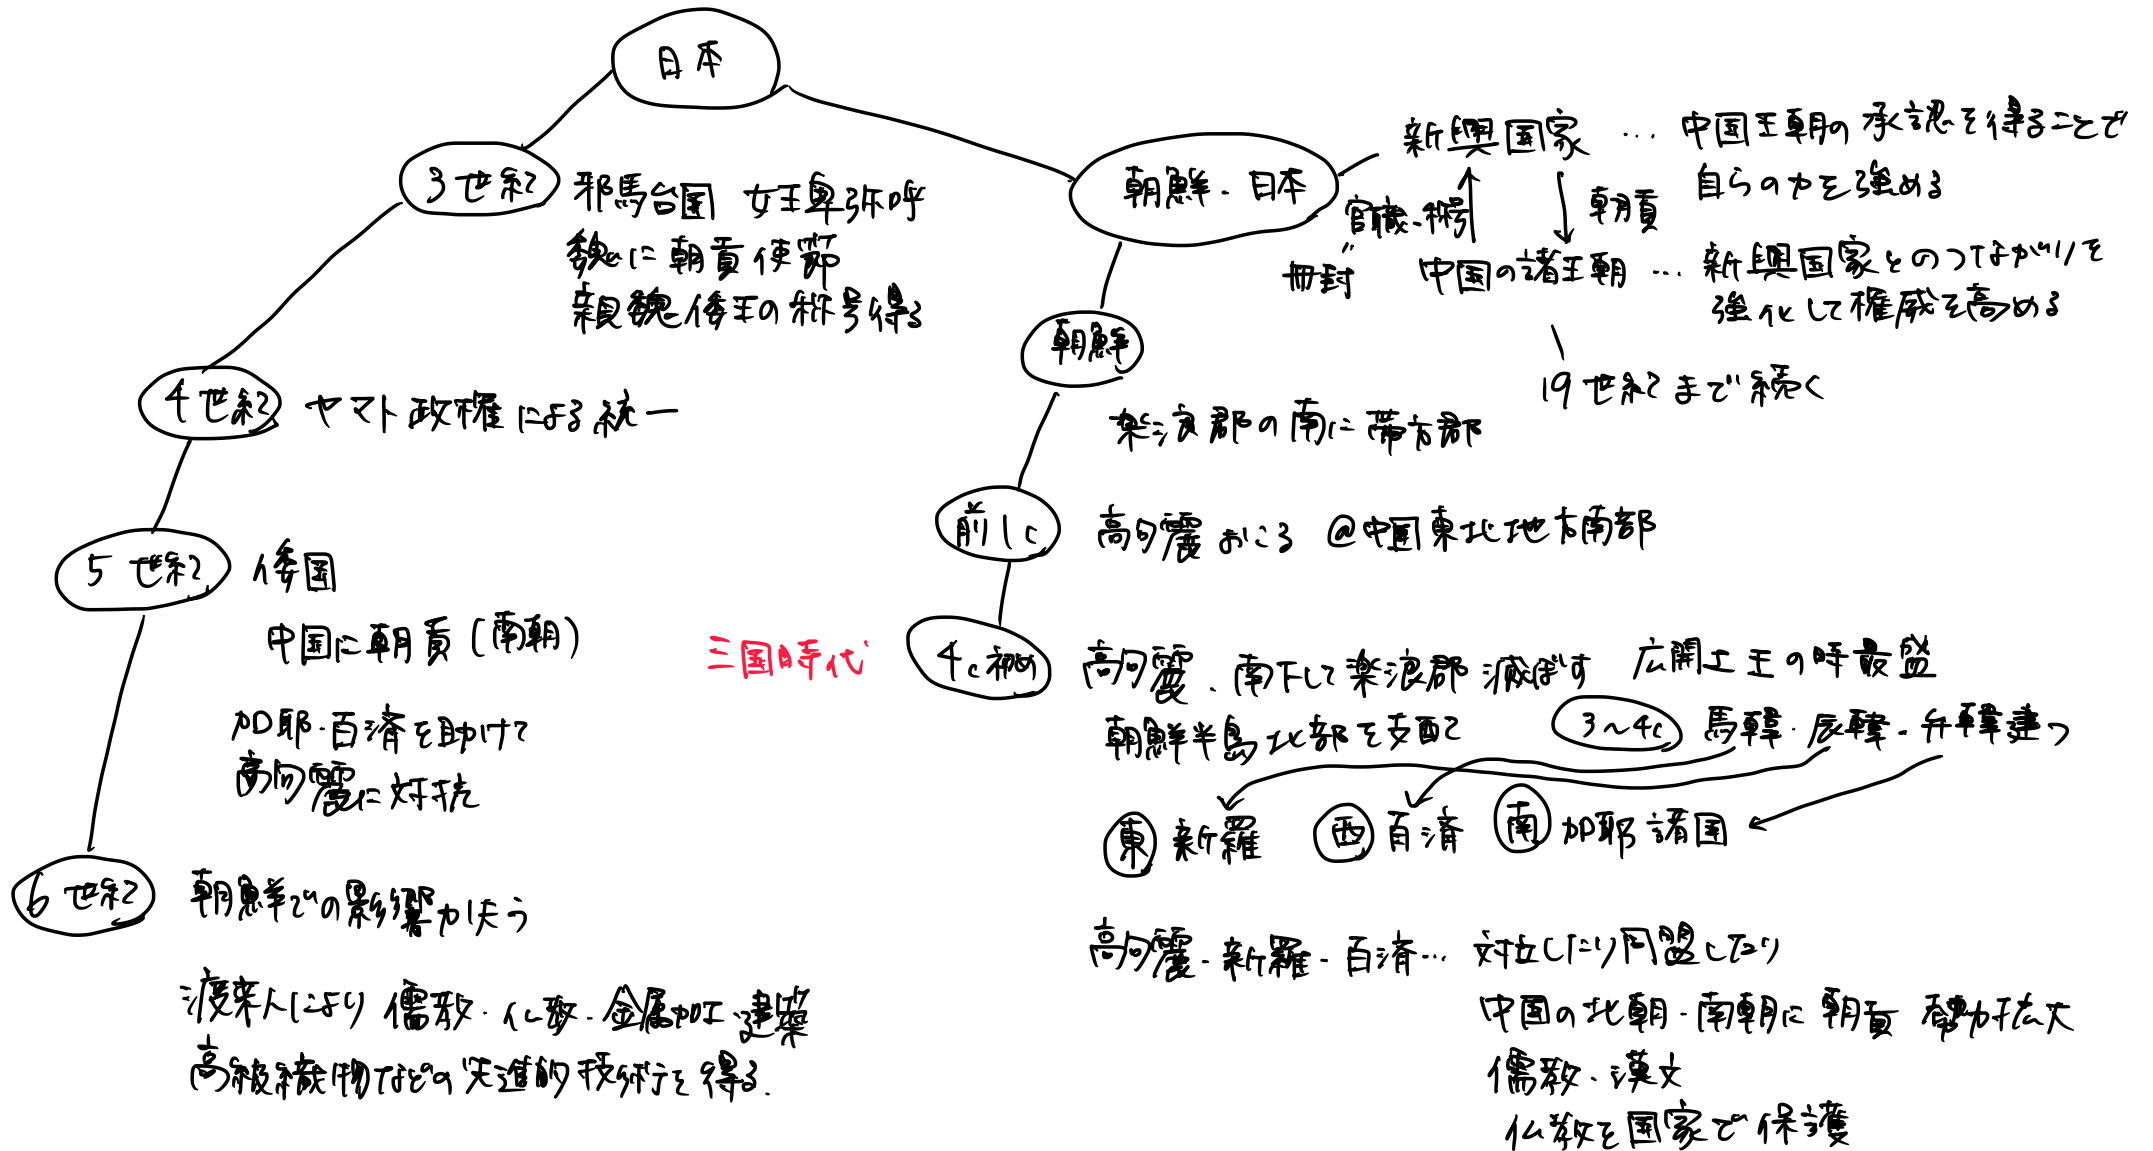 日本
3世紀
邪馬台国 女王卑弥呼
魏に朝貢使節
親魏倭王の称号得る
4世紀
ヤマト政権による統一
5世紀
倭国
中国に朝貢(南朝)
加耶・百済を助けて
高句麗に対抗
6世紀
朝鮮での影響力失う
渡来人により儒教・仏教・金属加工・建築
高級織物などの先進的技術を得る.
朝鮮・日本
新興国家 … 中国王朝の承認を得ることで
自らの力を強める
官職・称号
朝貢
冊封
中国の諸王朝 … 新興国家とのつながりを
強化して権威を高める
19世紀まで続く
朝鮮
楽浪郡の南に帯方郡
前1c
高句麗おこる @中国東北地方南部
三国時代
4c初め
高句麗・南下して楽浪郡滅ぼす 広開土王の時最盛
朝鮮半島北部を支配
3〜4c 馬韓・辰韓・弁韓建つ
東 新羅 西 百済 南 加耶諸国
高句麗・新羅・百済… 対立したり同盟したり
中国の北朝・南朝に朝貢 勢力拡大
儒教・漢文
仏教を国家で保護